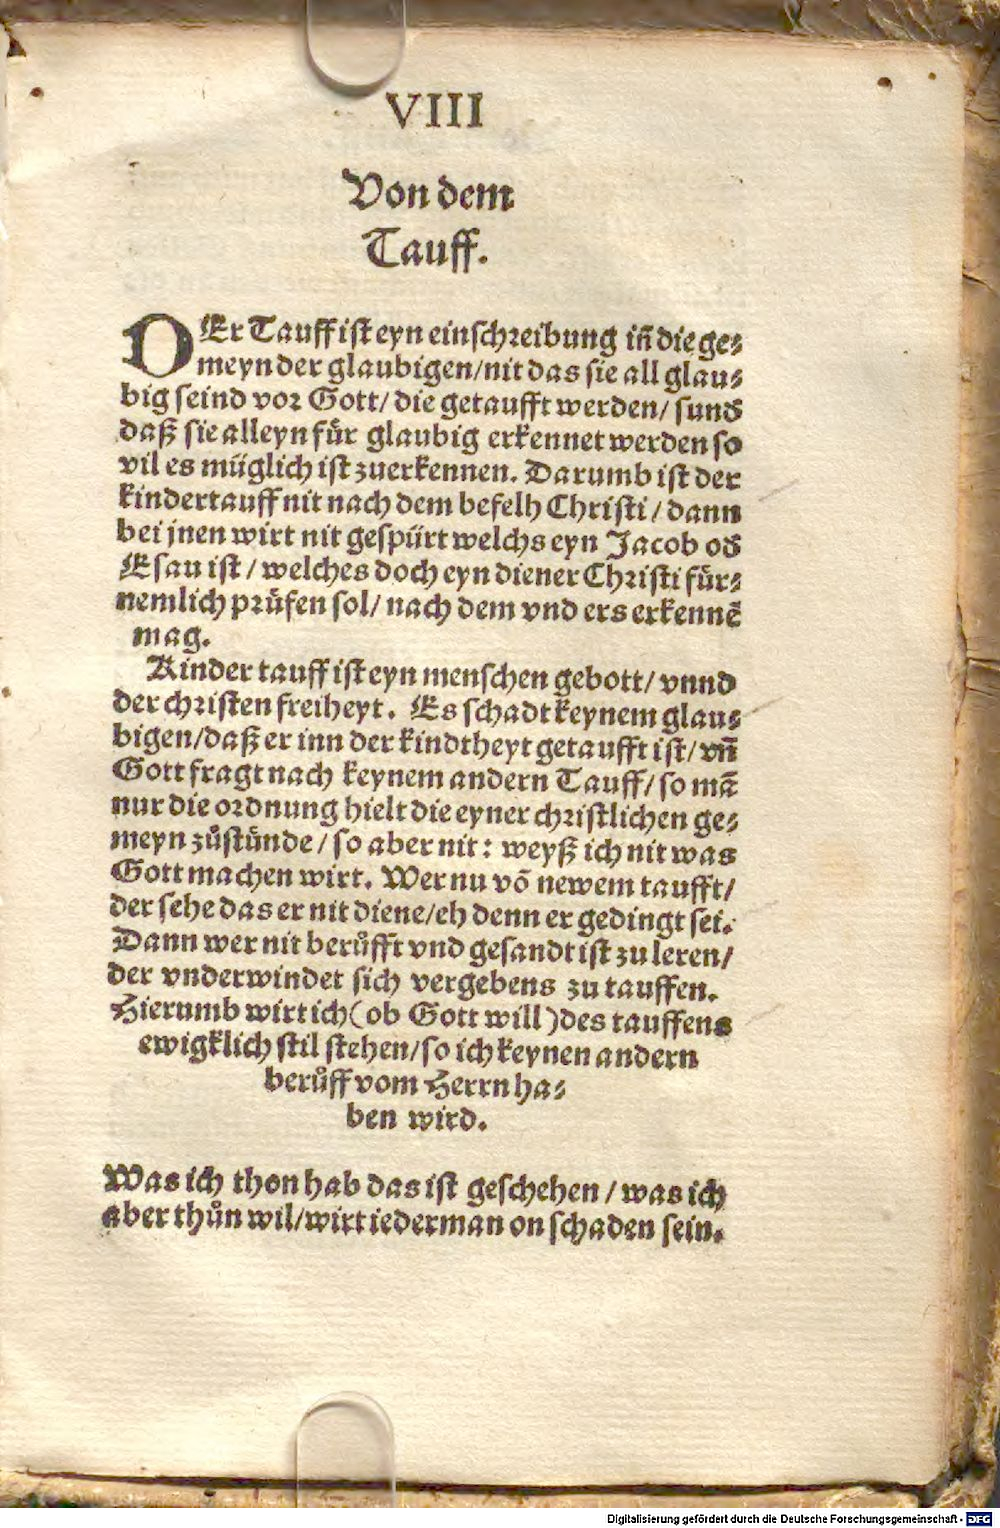 VIII
Von dem
Tauff.
DEr Tauff ist eyn einschreibung iñ die ge⸗
meyn der glaubigen/nit das sie all glau⸗
big seind vor Gott/ die getaufft werden/ sund
daß sie alleyn für glaubig erkennet werden so
vil es müglich ist zuerkennen. Darumb ist der
kindertauff nit nach dem befelh Christi/ dann
bei jnen wirt nit gespürt welchs eyn Jacob od
Esau ist/ welches doch eyn diener Christi für⸗
nemlich prüfen sol/ nach dem vnd ers erkennē
mag.
Kinder tauff ist eyn menschen gebott/ vnnd
der christen freiheyt. Es schadt keynem glau⸗
bigen/daß er inn der kindtheyt getaufft ist/ vñ
Gott fragt nach keynem andern Tauff/ so mā
nur die ordnung hielt die eyner christlichen ge⸗
meyn zůstünde/ so aber nit: weyß ich nit was
Gott machen wirt. Wer nu vō newem taufft/
der sehe das er nit diene/eh denn er gedingt sei.
Dann wer nit berůfft vnd gesandt ist zu leren/
der vnderwindet sich vergebens zu tauffen.
Hierumb wirt ich (ob Gott will) des tauffens
ewigklich stil stehen/so ich keynen andern
berůff vom Herrn ha⸗
ben wird.
Was ich thon hab das ist geschehen/ was ich
aber thůn wil/wirt iederman on schaden sein.
Digitalisierung gefördert durch die Deutsche Forschungsgemeinschaft - DFG